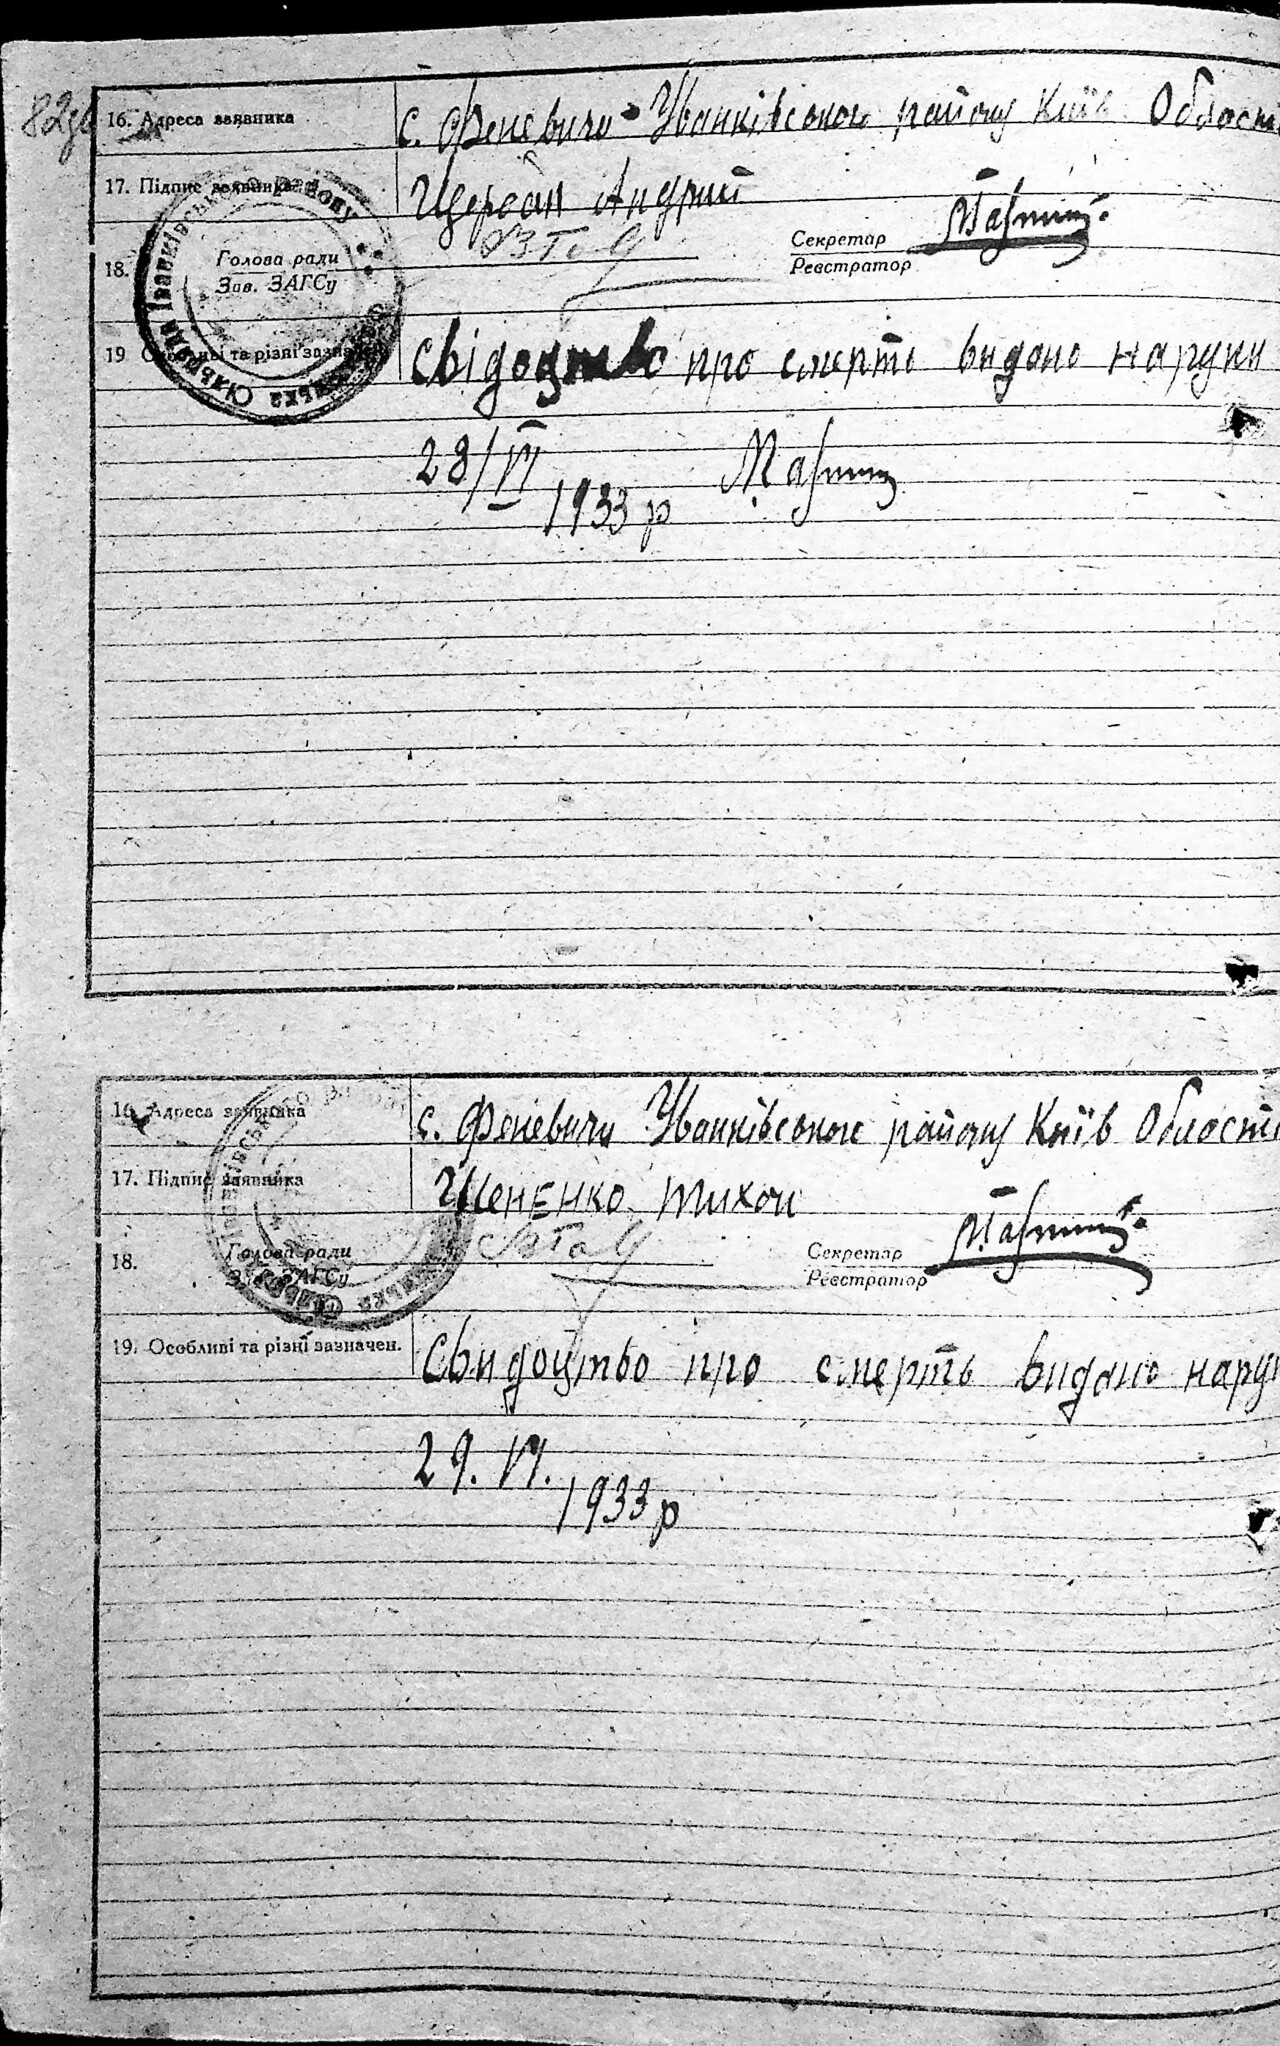 16. Адреса заявника с. Феневичи Іванківського району Київ Област
17. Підпис заявника Щербан Андрий
18. Голова ради
Зав. ЗАГСу
Секретар
Реєстратор
19. Особливі та різні зазначен. Свідоцтво про смерть видано на руки
28/VI
1933 р
16. Адреса заявника с. Феневичи Іванківського району Київ Област
17. Підпис заявника Тихон
18. Голова ради
Зав. ЗАГСу
Секретар
Реєстратор
19. Особливі та різні зазначен. Свидоцтво про смерть видано на рук
29. VI.
1933 р